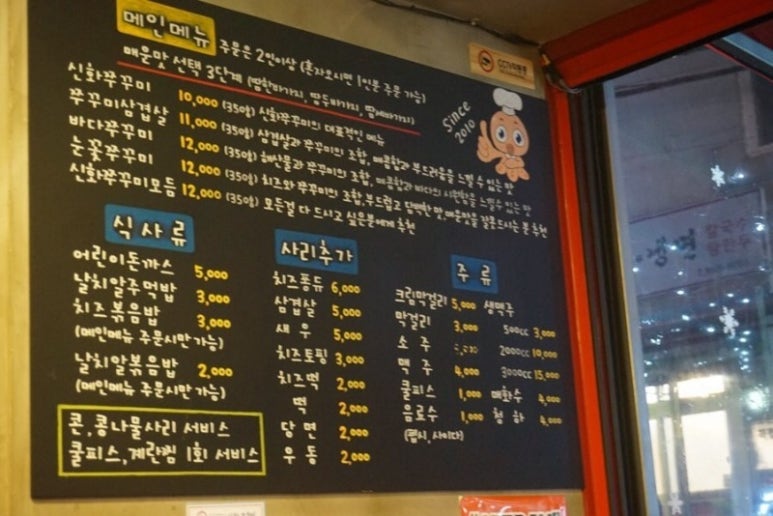 메인메뉴
주문은 2인이상 (혼자오시면 1인분 주문 가능)
매운맛 선택 3단계 (땀한바가지, 땀두바가지, 땀세바가지)
신화쭈꾸미 10,000 (350g) 신화쭈꾸미의 대표적인 메뉴
쭈꾸미삼겹살 11,000 (350g) 삼겹살과 쭈꾸미의 조합, 매콤함과 부드러움을 느낄수 있는 맛
바다쭈꾸미 12,000 (350g) 해산물과 쭈꾸미의 조합, 매콤함과 바다의 시원함을 느낄수 있는 맛
눈꽃쭈꾸미 12,000 (350g) 치즈와 쭈꾸미의 조합, 부드럽고 담백한 맛, 매운맛을 잘못드시는 분 추천
신화쭈꾸미모듬 12,000 (350g) 모든걸 다 드시고 싶은분에게 추천
Since
2010
식사류
어린이돈까스 5,000
날치알주먹밥 3,000
치즈볶음밥 3,000
(메인메뉴 주문시만 가능)
날치알볶음밥 2,000
(메인메뉴 주문시만 가능)
콘, 콩나물사리 서비스
쿨피스, 계란찜 1회 서비스
사리추가
치즈퐁듀 6,000
삼겹살 5,000
새우 5,000
치즈토핑 3,000
치즈떡 2,000
떡 2,000
당면 2,000
우동 2,000
주류
크림막걸리 5,000
막걸리 3,000
소주
맥주 4,000
쿨피스 1,000
음료수 1,000
(펩시, 사이다)
생맥주
500cc 3,000
2000cc 10,000
3000cc 15,000
매화수 4,000
청하 4,000
칼국수
냉면